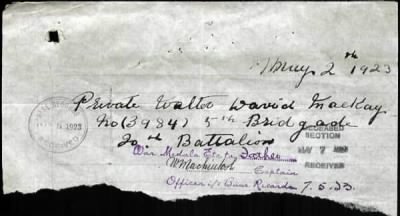 May 2nd 1923
Private Walter David Mackay
No (3984) 5th Bridgade
20th Battalion
DECEASED SECTION
MAY 7 1923
RECEIVED
War Medals Etc to Father
Captain
Officer i/c Base Records 7.5.23.